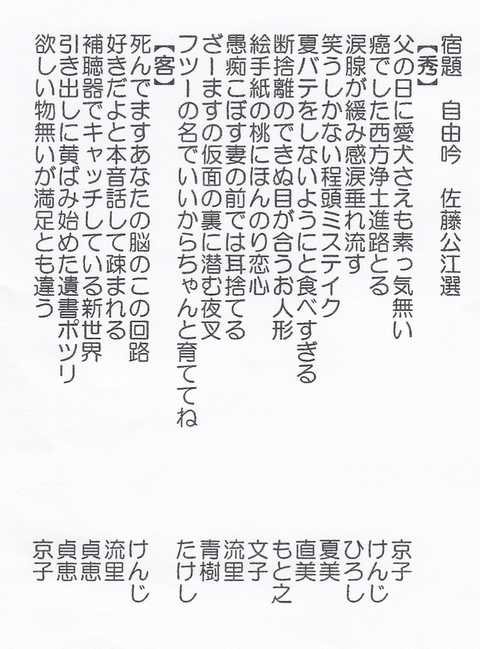 宿題　自由吟　佐藤公江選
【秀】
父の日に愛犬さえも素っ気無い　京子
癌でした西方浄土進路とる　けんじ
涙腺が緩み感涙垂れ流す　ひろし
笑うしかない程頭ミステイク　夏美
夏バテをしないようにと食べすぎる　直美
断捨離のできぬ目が合うお人形　もと之
絵手紙の桃にほんのり恋心　文子
愚痴こぼす妻の前では耳捨てる　流里
ざーますの仮面の裏に潜む夜叉　青樹
フツーの名でいいからちゃんと育ててね　たけし
【客】
死んでますあなたの脳のこの回路　けんじ
好きだよと本音話して疎まれる　流里
補聴器でキャッチしている新世界　貞恵
引き出しに黄ばみ始めた遺書ポツリ　貞恵
欲しい物無いが満足とも違う　京子